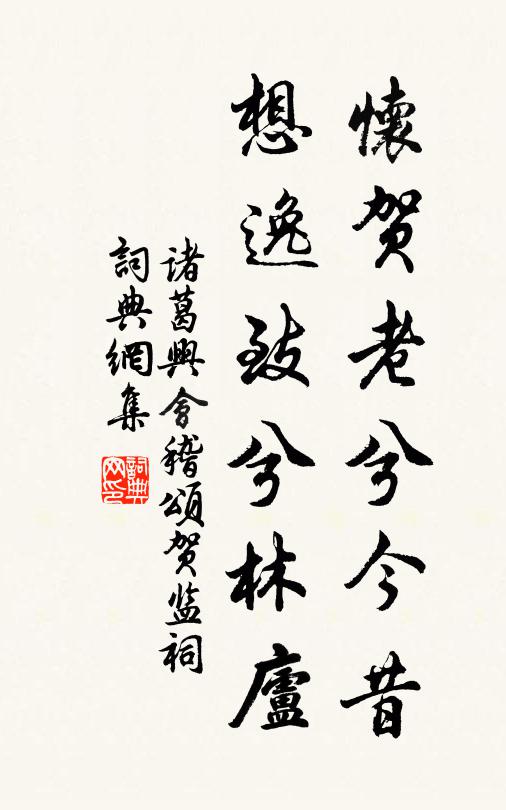 懷賀老兮今昔
想逸致兮林廬
诸葛興會稽頌賀监祠
詞典網集
詞典
网印